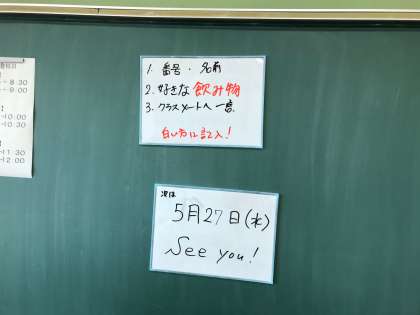 1. 番号・名前
2. 好きな飲み物
3. クラスメートへ一言
白い方に記入!
次は
5月27日(水)
See you!
8:30
9:00
10:00
10:30
11:30
12:00